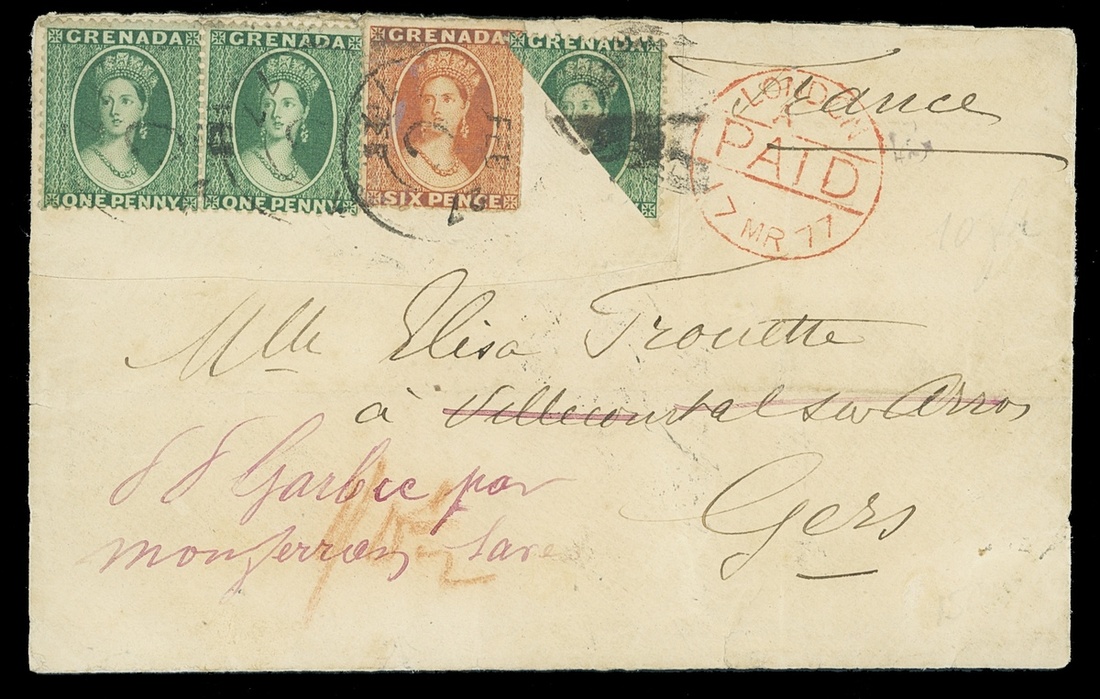 GRENADA GRENADA GRENADA GRENADA
ONE PENNY ONE PENNY SIX PENCE
France
LONDON
PAID
7 MR 77
Mlle Elisa Trouette
à Villecomtal sur Arros
Gers
Garbic par
monferran Save